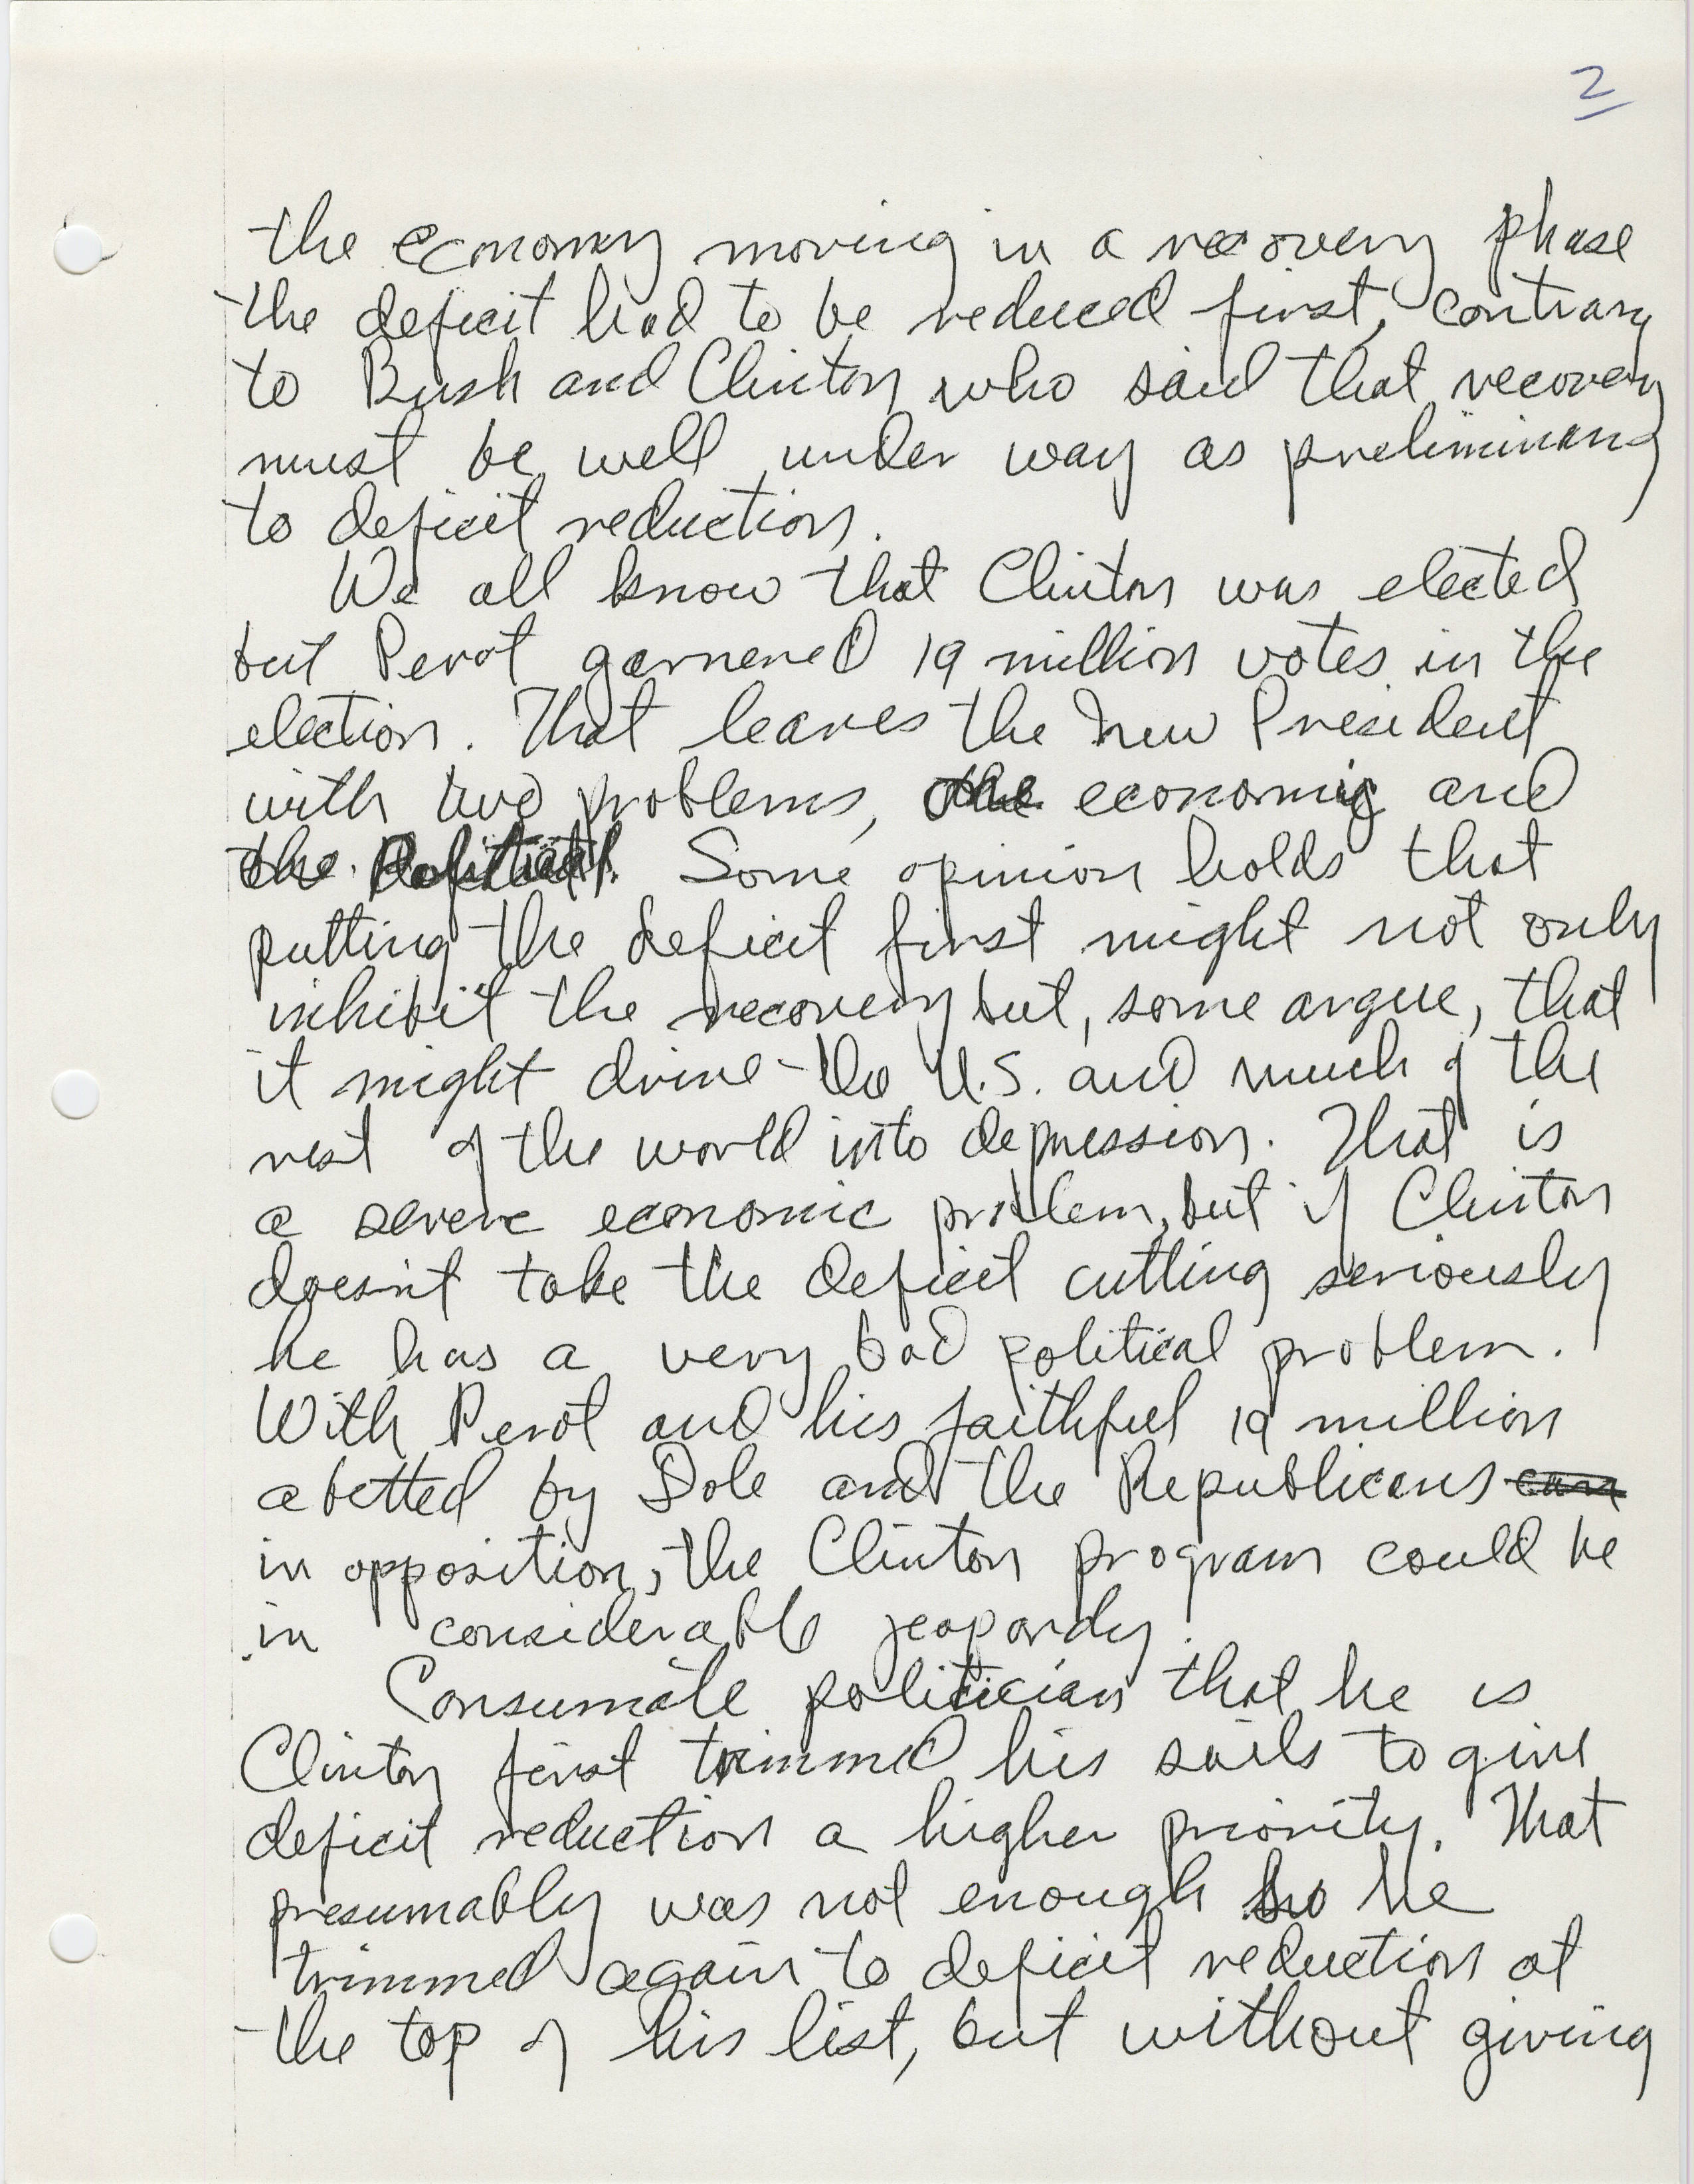 2
the economy moving in a recovery phase
the deficit had to be reduced first, contrary
to Bush and Clinton who said that recovery
must be well under way as preliminary
to deficit reduction.
We all know that Clinton was elected
but Perot garnered 19 million votes in the
election. That leaves the new President
with two problems, the economic and
the Political. Some opinion holds that
putting the deficit first might not only
inhibit the recovery but, some argue, that
it might drive the U.S. and much of the
rest of the world into depression. That is
a severe economic problem, but if Clinton
doesn't take the deficit cutting seriously
he has a very bad political problem.
With Perot and his faithful 19 million
abetted by Dole and the Republicans
in opposition, the Clinton program could be
in considerable jeopardy.
Consumate politician that he is
Clinton first trimmed his sails to give
deficit reduction a higher priority. That
presumably was not enough so he
trimmed again to deficit reduction at
the top of his list, but without giving